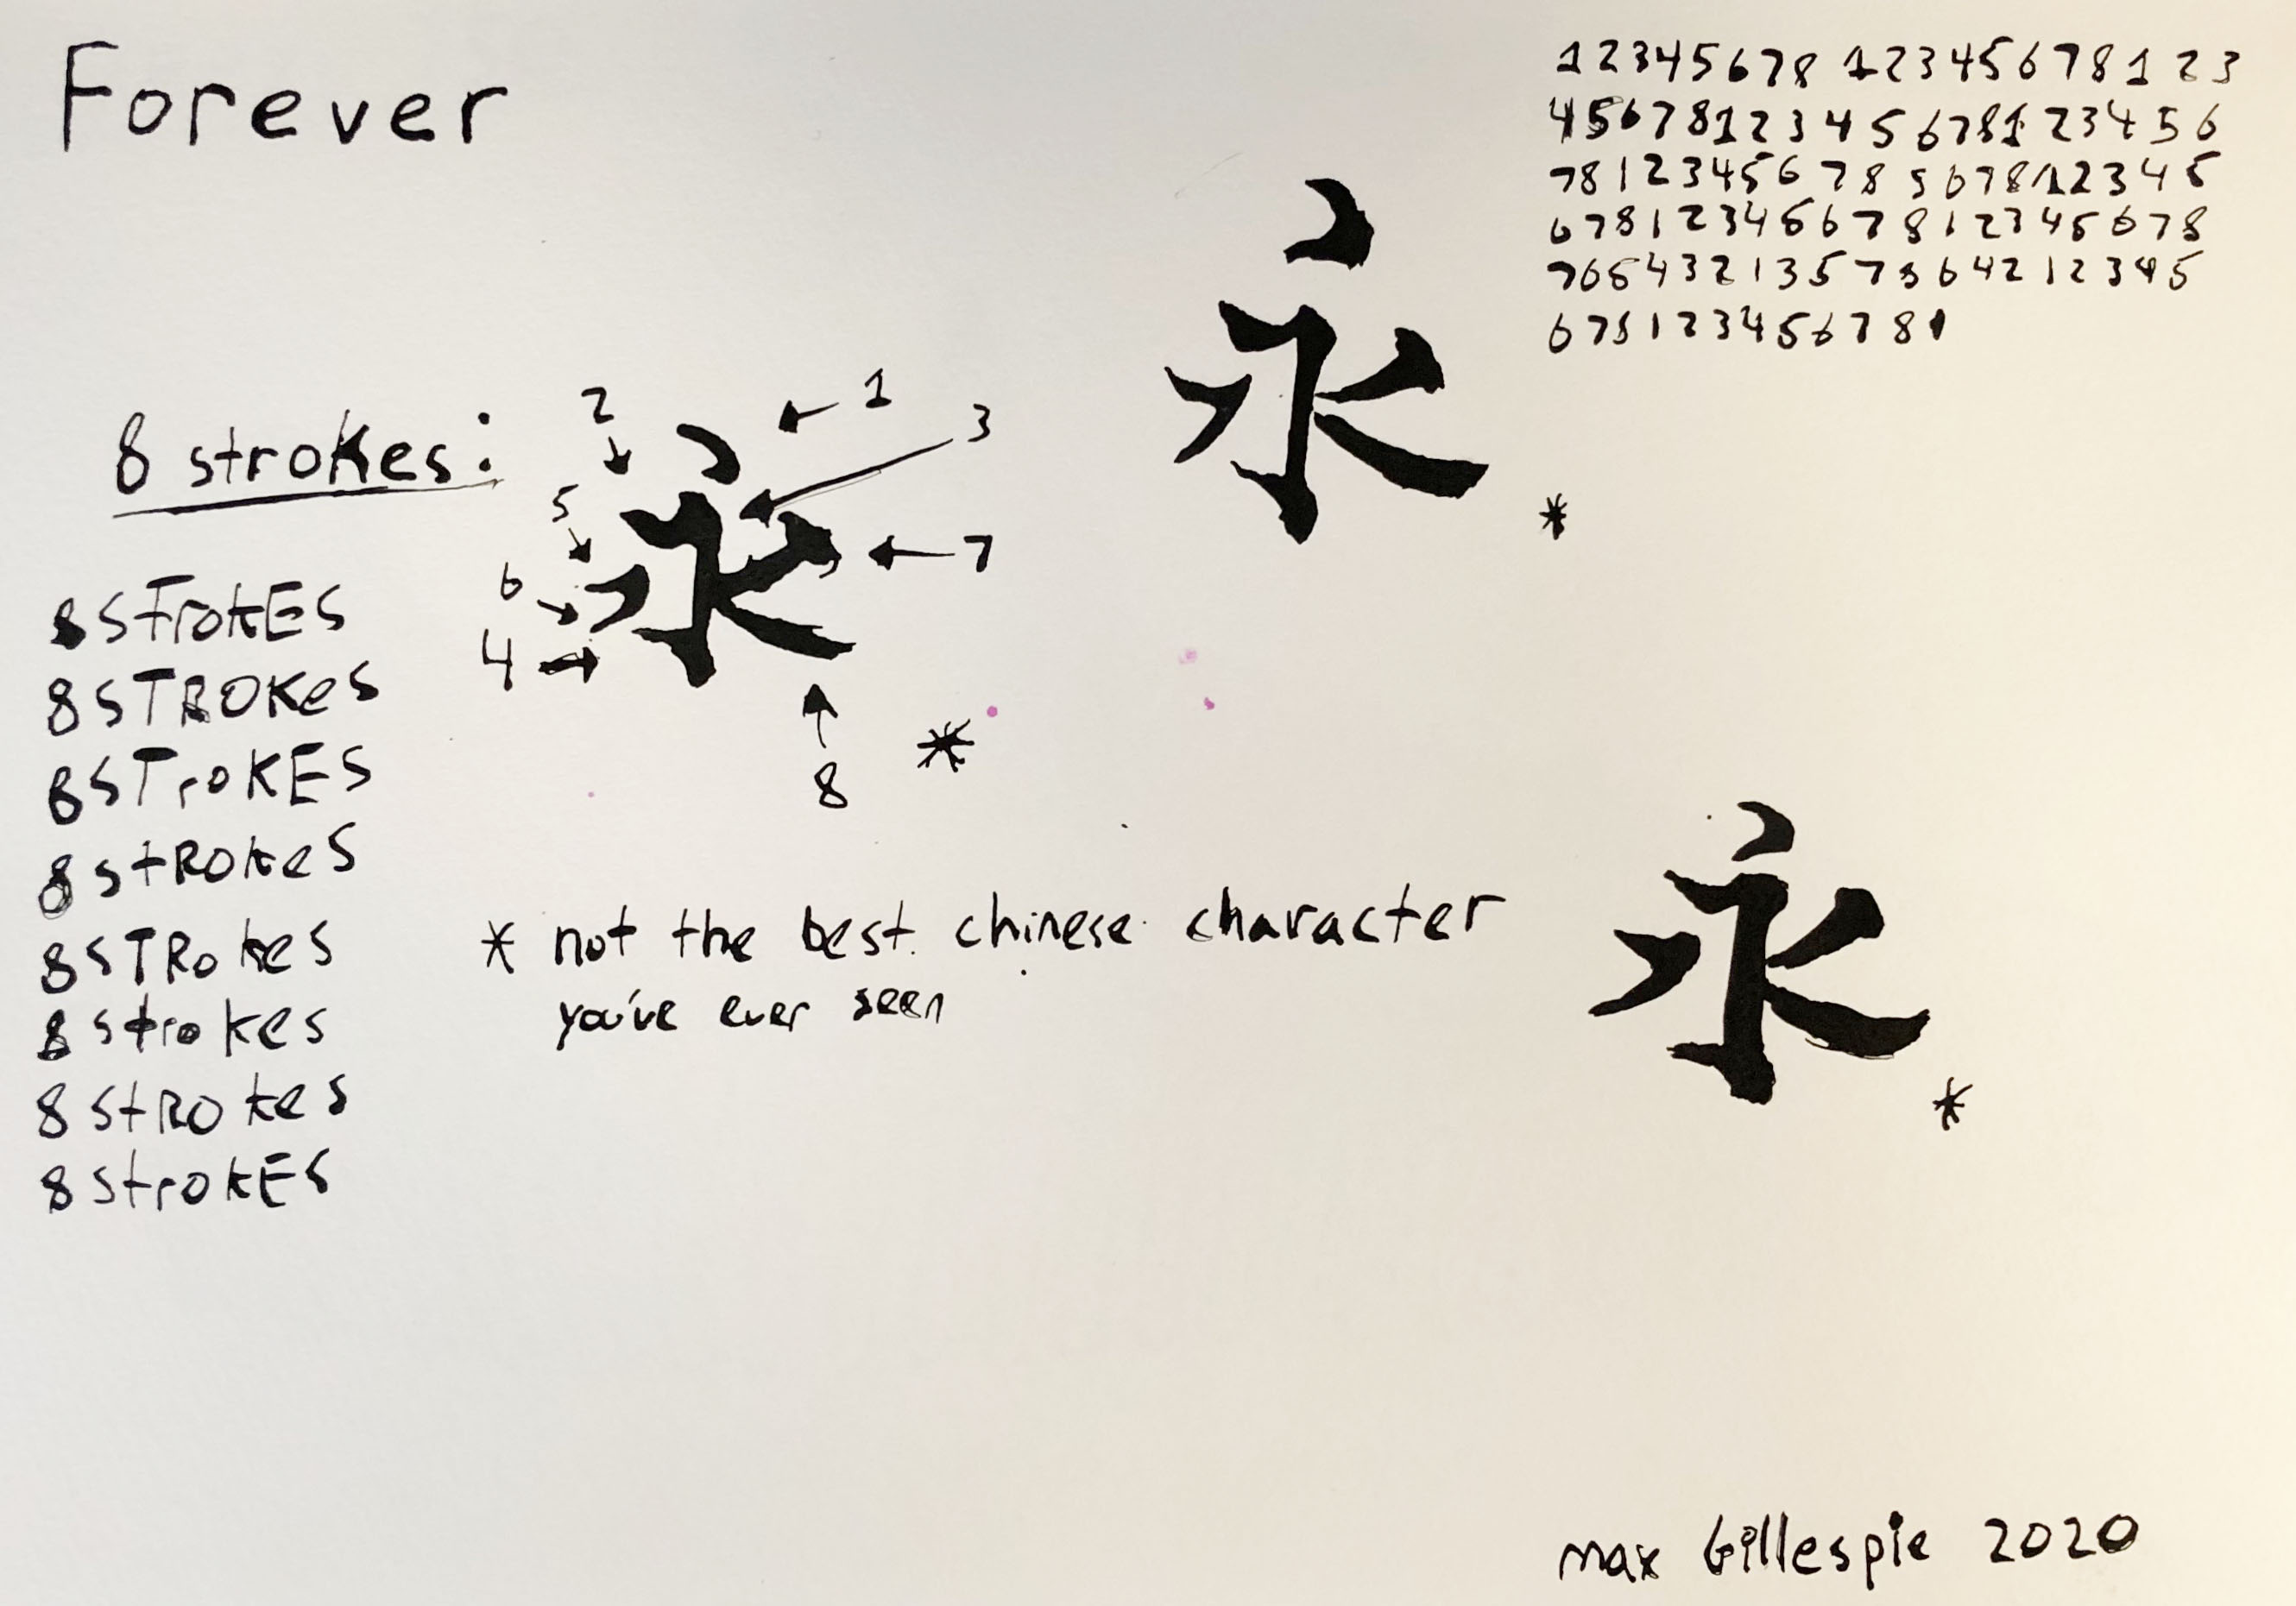 Forever
1 2 3 4 5 6 7 8 1 2 3 4 5 6 7 8 1 2 3
4 5 6 7 8 1 2 3 4 5 6 7 8 1 2 3 4 5 6
7 8 1 2 3 4 5 6 7 8 5 6 7 8 1 2 3 4 5
6 7 8 1 2 3 4 5 6 7 8 1 2 3 4 5 6 7 8
7 6 5 4 3 2 1 3 5 7 8 6 4 2 1 2 3 4 5
6 7 8 1 2 3 4 5 6 7 8 1
永
*
8 strokes:
2
1
3
5
永
7
6
4
8
*
8 STroKES
8 STROKeS
8 STroKES
8 stROKeS
8 STRoKes
8 stroKes
8 StROKes
8 StroKES
* not the best chinese character
you've ever seen
永
*
max Gillespie 2020